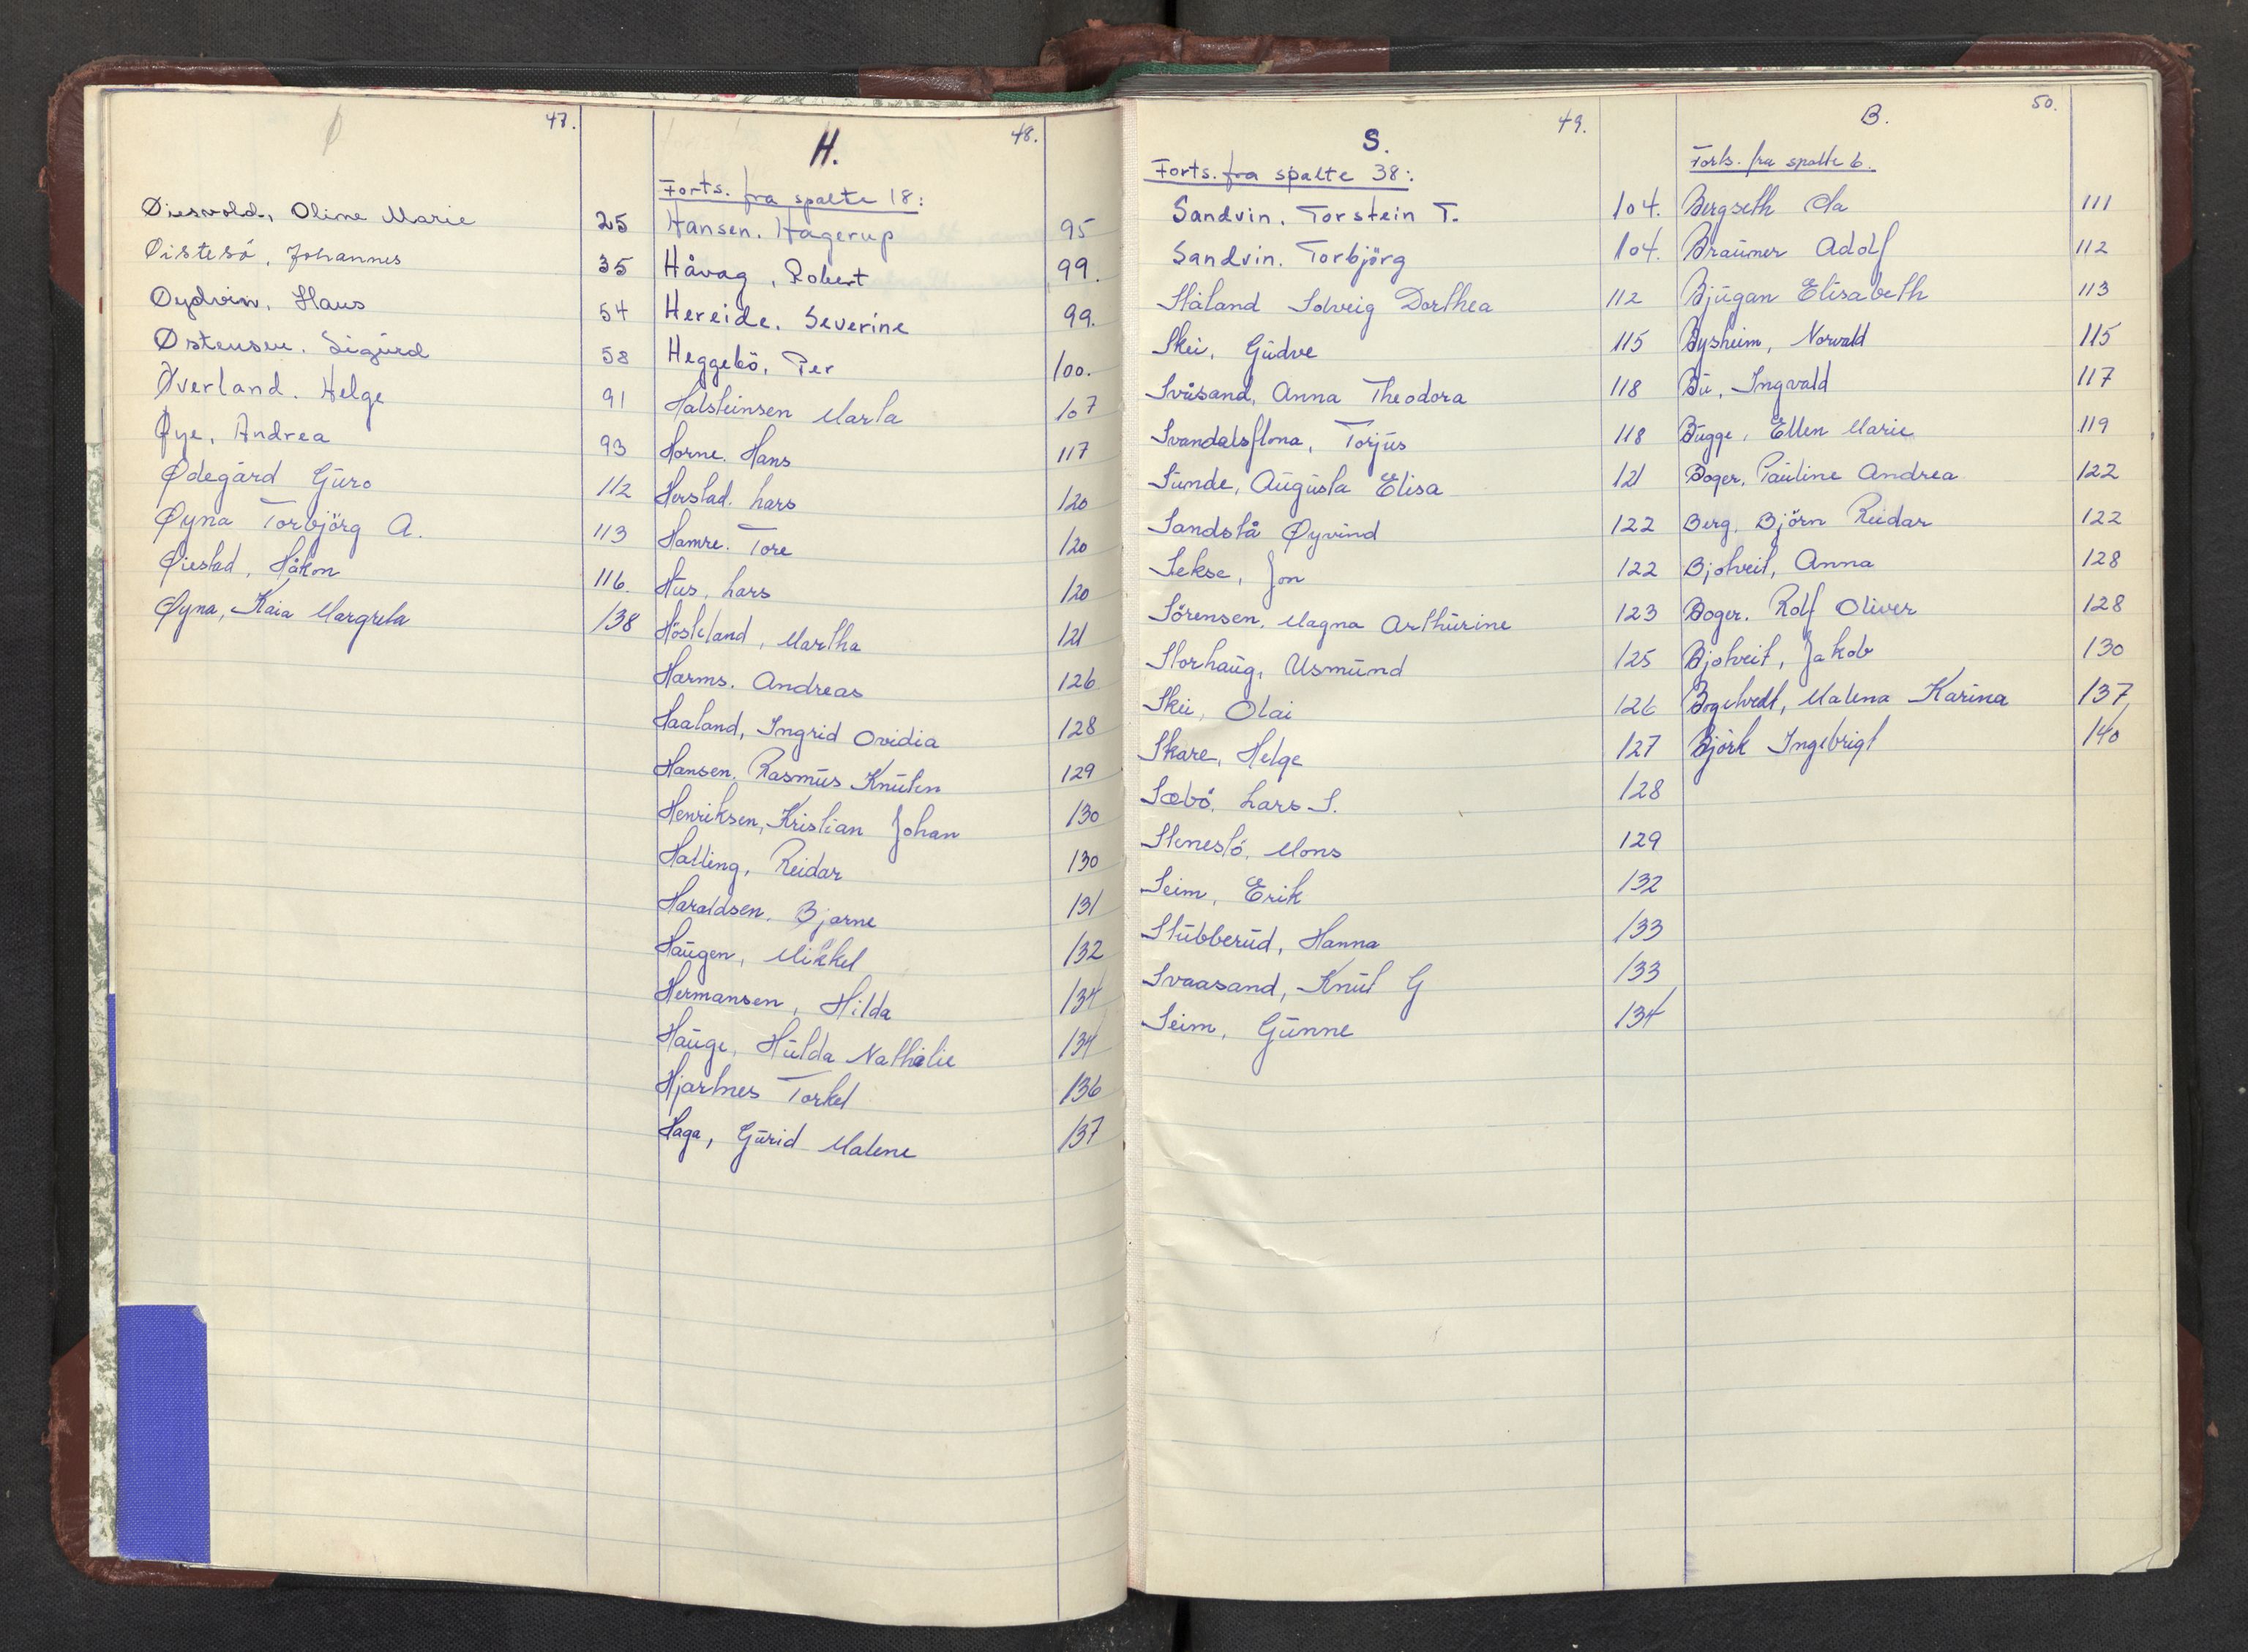 Ø 47.
Øiesvold, Oline Marie 25
Øistesö, Johannes 35
Øydvin, Hans 54
Østensen. Sigurd 58
Øverland. Helge 91
Øye, Andrea 93
Ødegård Guro 112
Øyna Torbjörg A. 113
Øiestad, Håkon 116.
Øyna, Kaia Margreta 138
H. 48.
Forts. fra spalte 18:
Hansen. Hagerup 95
Håvag, Robert 99.
Hereide. Severine 99.
Heggebö, Per 100.
Halsteinsen Marta 107
Horne. Hans 117
Herstad. Lars 120
Hamre. Tore 120
Hus, Lars 120
Hösteland, Martha 121
Harms. Andreas 126
Haaland, Ingrid Ovidia 128
Hansen. Rasmus Knuten 129
Henriksen, Kristian Johan 130
Halling, Reidar 130
Haraldsen. Bjarne 131
Haugen, Mikkel 132
Hermansen, Hilda 134
Hauge, Hulda Nathalie 134
Hjartnes Torkel 136
Haga, Gurid Malene 137
S. 49.
Forts. fra spalte 38:
Sandvin. Torstein T. 104.
Sandvin. Torbjörg 104.
Ståland Solveig Dorthea 112
Skei, Gudve 115
Svåsand, Anna Theodora 118
Svandalsflona, Torjus 118
Sunde, Augusta Elisa 121
Sandstå Øyvind 122
Sekse, Jon 122
Sörensen. Magna Arthurine 123
Storhaug, Asmund 125
Skei, Olai 126
Skare, Helge 127
Sæbö, Lars S. 128
Stenestö, Mons 129
Seim, Erik 132
Stubberud, Hanna 133
Svaasand, Knut G 133
Seim, Gunne 134
B. 50.
Forts. fra spalte 6.
Bergseth Ola 111
Braumer Adolf 112
Bjugan Elisabeth 113
Bysheim, Norvald 115
Bu, Ingvald 117
Bugge, Ellen Marie 119
Boger, Pauline Andrea 122
Berg. Björn Reidar 122
Bjotveit, Anna 128
Boger. Rolf Oliver 128
Bjotveit, Jakob 130
Malena Karina 137
Björk Ingebrigt 140